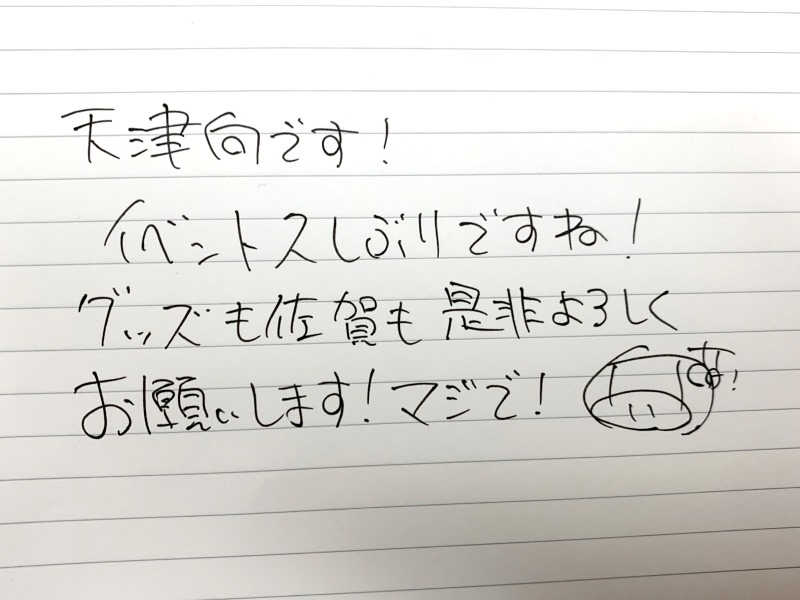 天津向です!
イベントスしぶりですね!
グッズも佐賀も是非よろしく
お願いします!マジで!
あ!